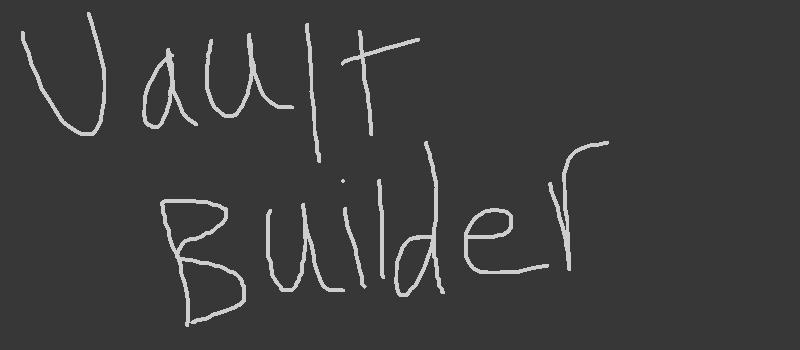 Vault
Builder